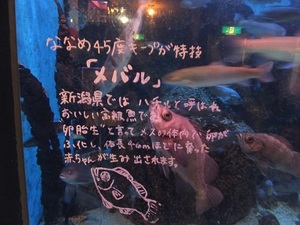 ななめ45度キープが特技
「メバル」
新潟県では ハチメと呼ばれ
おいしい高級魚で
卵胎生”と言って メスの体内で 卵が
ふ化し、体長4mmほどに育った
赤ちゃんが生み出されます。